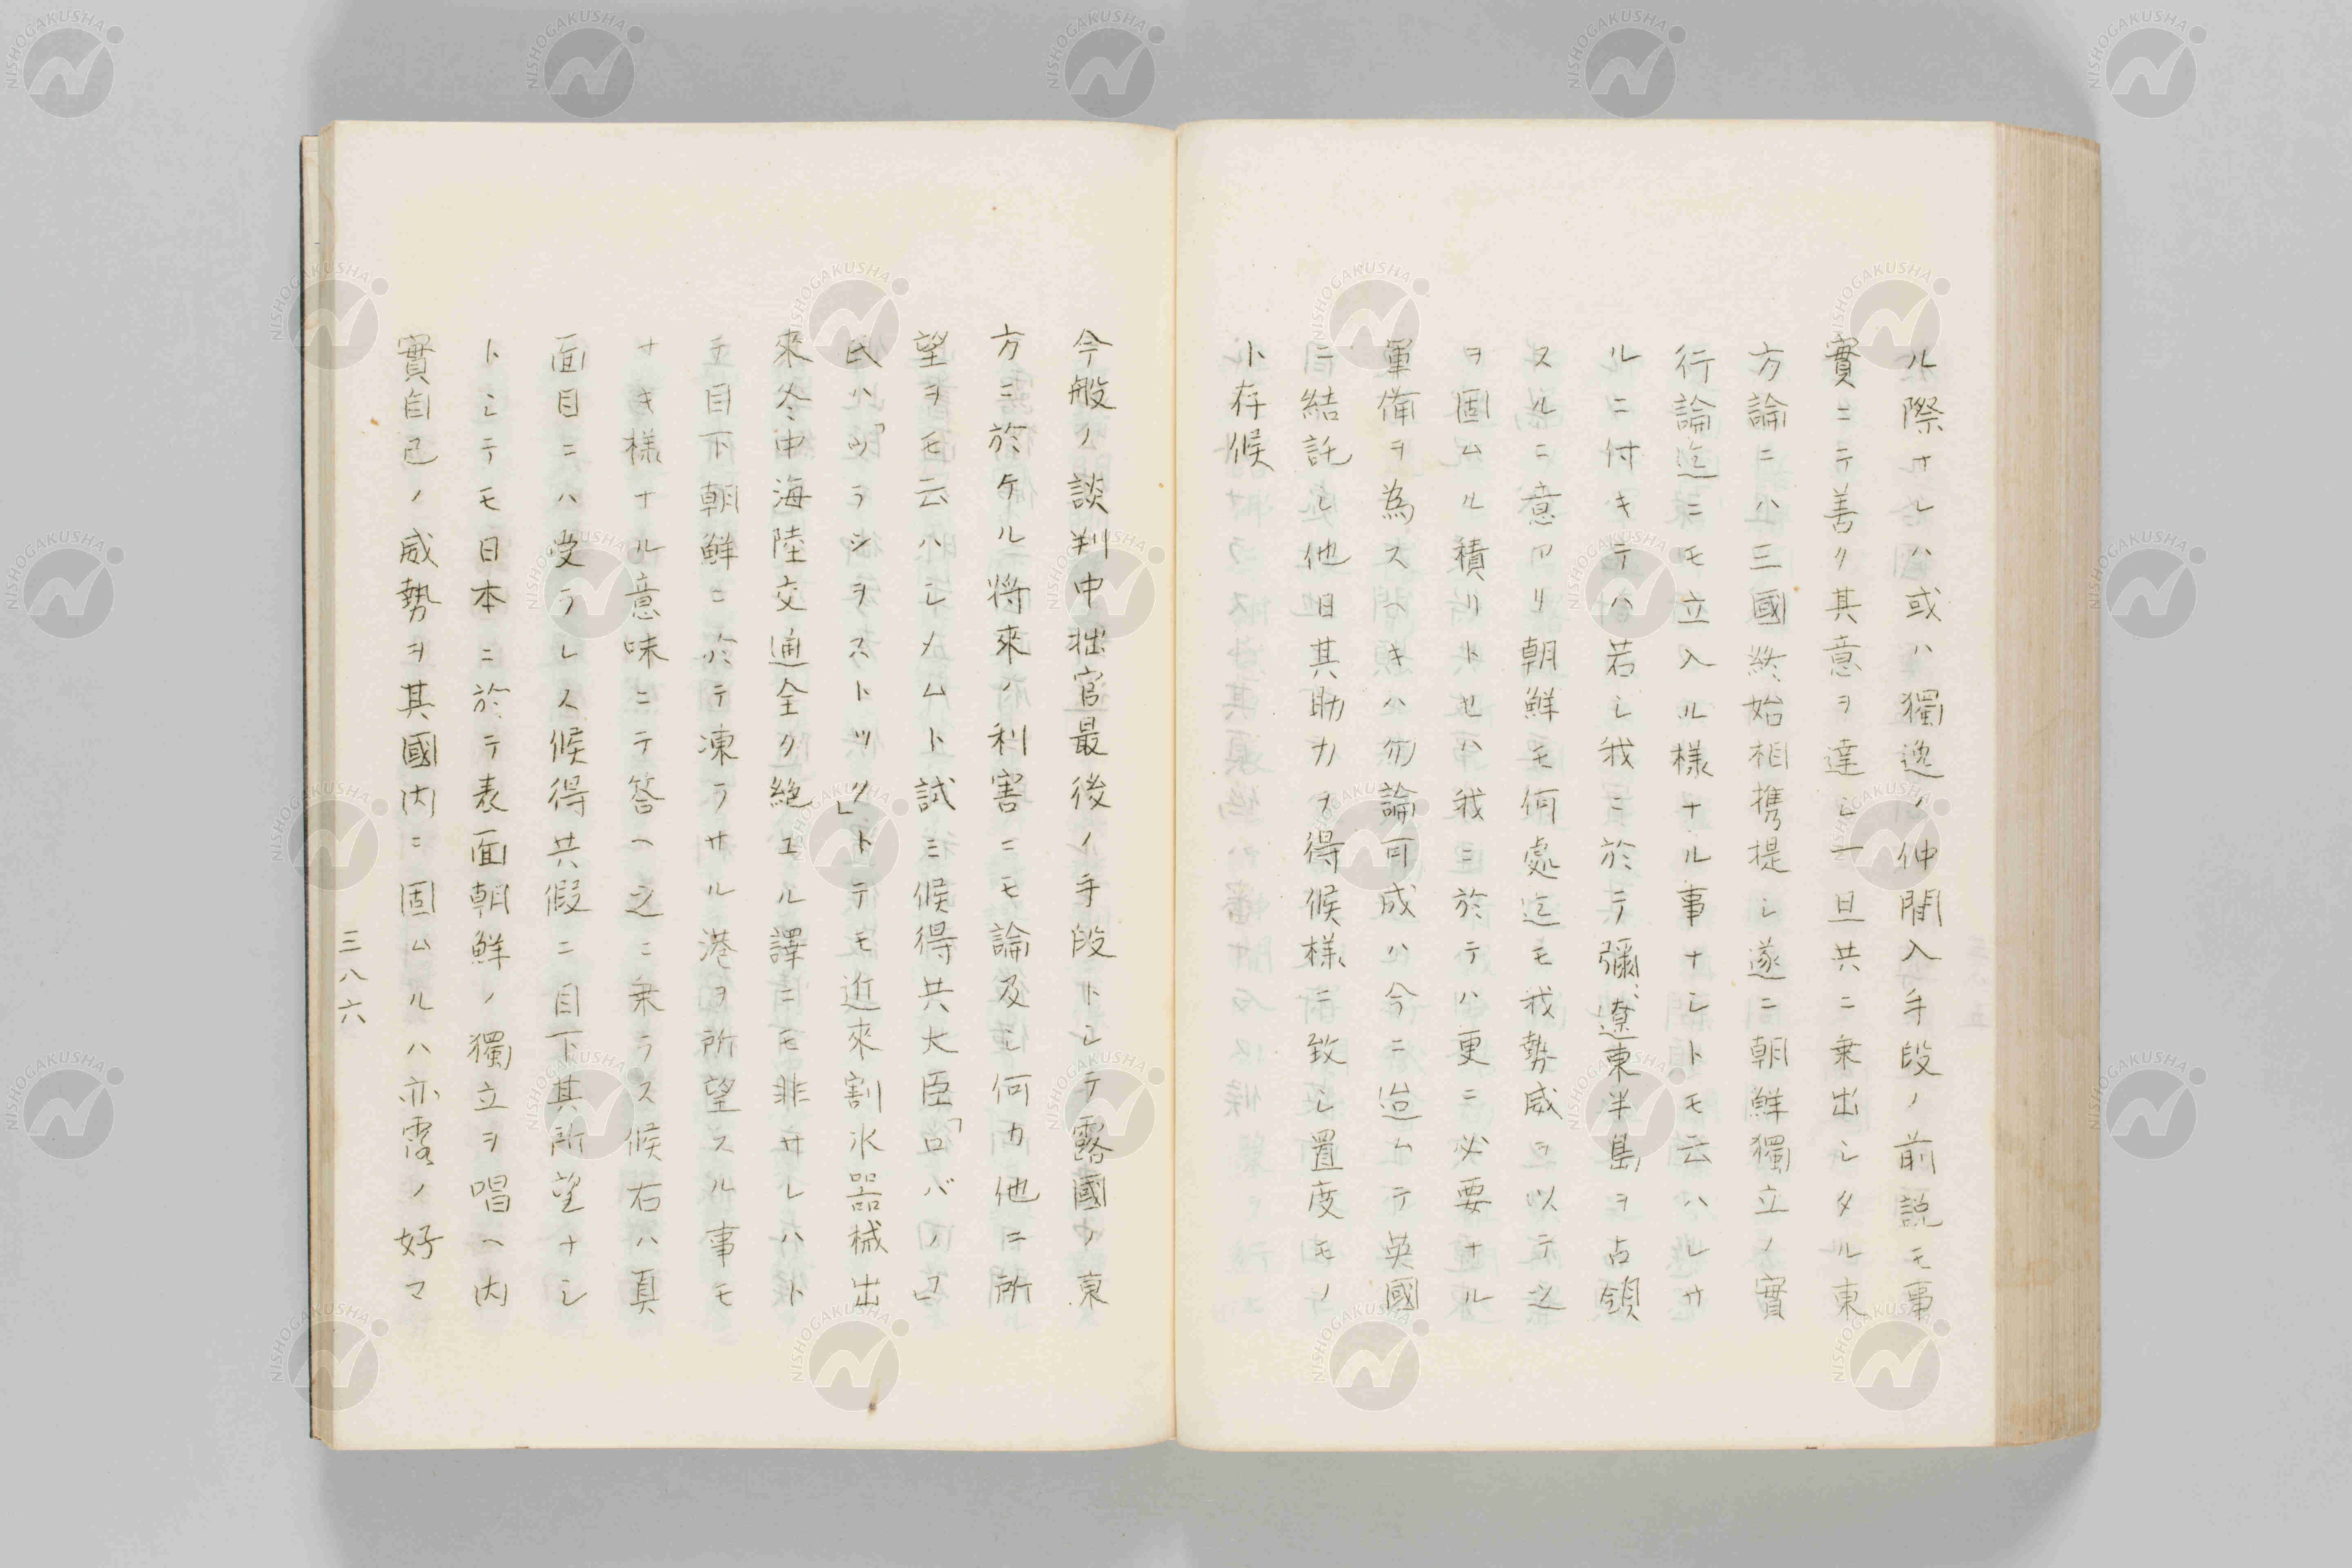 ル際ナレハ或ハ獨逸ノ仲間入手段ノ前説モ事
實ニテ善ク其意ヲ達シ一旦共ニ乗出シタル東
方論ニハ三國終始相携提シ遂ニ朝鮮獨立ノ實
行論迄ニモ立入ル樣ナル事ナシトモ云ハレサ
ルニ付キテハ若シ我ニ於テ彌〻遼東半島ヲ占領
スルニ意アリ朝鮮モ何處迄モ我勢威ヲ以テ之
ヲ固ムル積リトセハ我ニ於テハ更ニ必要ナル
軍備ヲ為スヘキハ勿論可成ハ今ニ迨ムテ英國
ニ結託シ他日其助力ヲ得候樣ニ致シ置度モノ
ト存候
今般ノ談判中拙官最後ノ手段トシテ露國ノ東
方ニ於ケル將來ノ利害ニモ論及シ何カ他ニ所
望ヲモ云ハシメムト試ミ候得共大臣「ロバノフ」
氏ハ「ウラシヲストツク」トテモ近來割氷器械出
來冬中海陸交通全ク絶エル譯ニモ非サレハト
テ目下朝鮮ニ於テ凍ラサル港ヲ所望スル事モ
ナキ樣ナル意味ニテ答ヘ之ニ乗ラス候右ハ真
面目ニハ受ラレス候得共假ニ目下其所望ナシ
トシテモ日本ニ於テ表面朝鮮ノ獨立ヲ唱ヘ内
實自己ノ威勢ヲ其國内ニ固ムルハ亦露ノ好マ
三八六
NISHOGAKUSHA